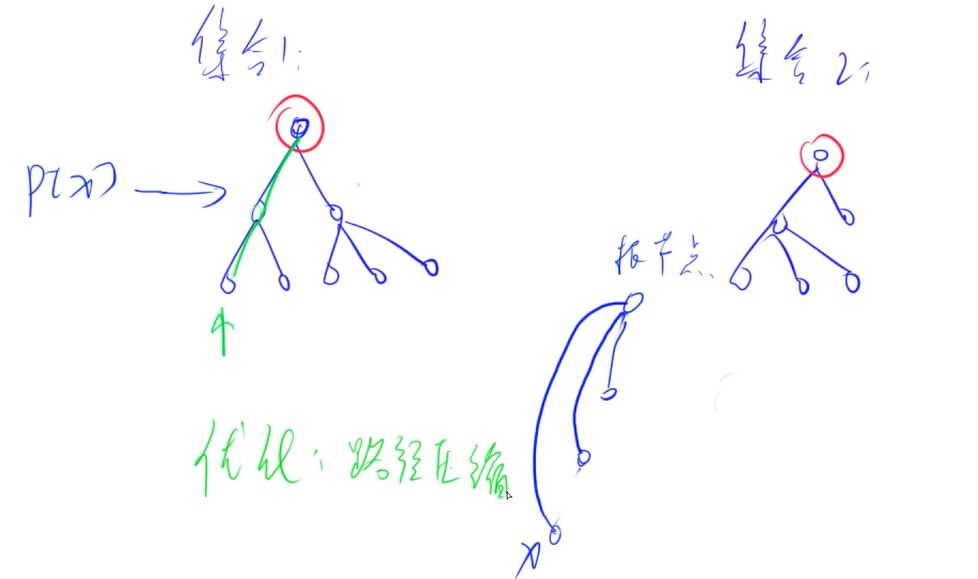 集合1:
集合2:
p[x]
根节点.
优化: 路径压缩
x